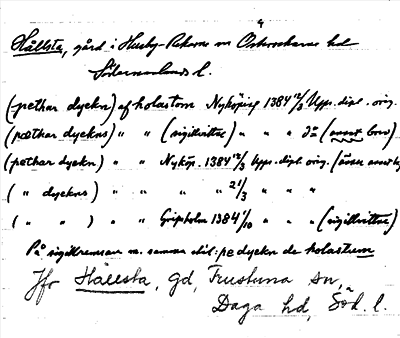 Hållsta, gård i Husby-Rekarne sn Österrekarne hd
Södermanlands l.
(pethar dyekn) af holastom Nyköping 1384 12/3 Upps. dipl. orig.
(pæthar dyekns) " " (sigillvittne) " " " da (annat brev)
(pethar dyekn) " " Nyköp. 1384 12/3 Upps. dipl. orig. (även annat
( " dyekns) " " " " 21/3 " " "
( " " ) " " Gripsholm 1384 1/10 " " " (sigillvittne)
På sigillremsan m. samma stil: pe dyekn de holastum
Jfr Hållsta, gd, Frustuna sn,
Daga hd, Söd. l.